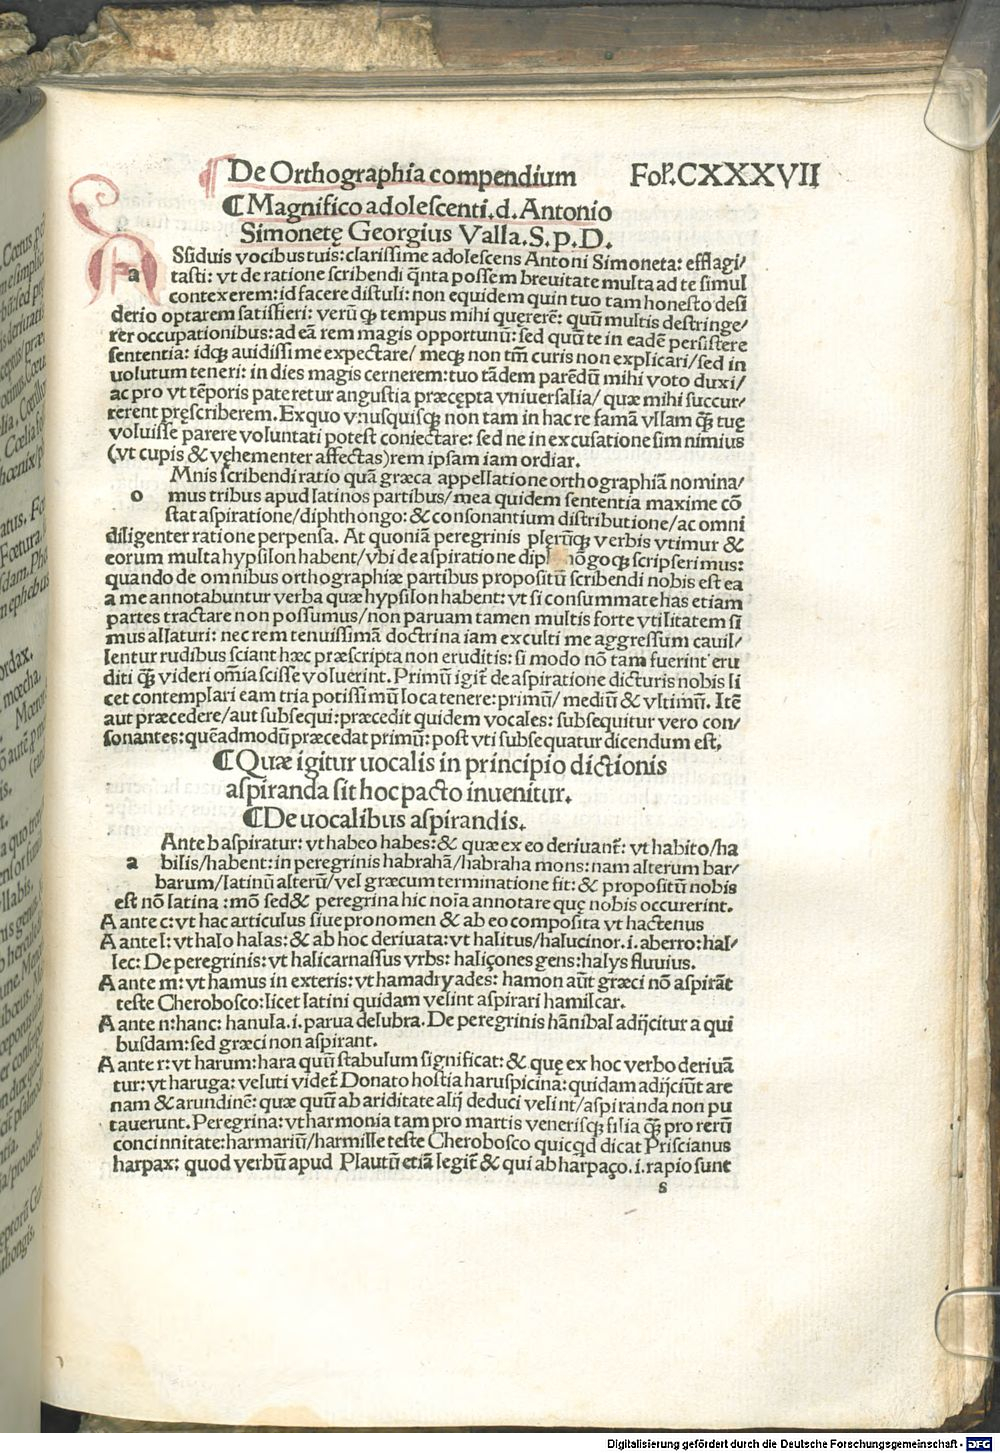 De Orthographia compendium Fol.CXXXVII
⁋Magnifico adolescenti.d.Antonio
Simonetę Georgius Valla.S.p.D.
a Ssiduis vocibus tuis:clarissime adolescens Antoni Simoneta: efflagi/
tasti: vt de ratione scribendi q̃nta possem breuitate multa ad te simul
contexerem:id facere distuli: non equidem quin tuo tam honesto desi
derio optarem satisfieri: verũ ꝙ tempus mihi quęrerẽ: quũ multis destringe/
rer occupationibus:ad eã rem magis opportunũ: sed quũ te in eadẽ persistere
sententia: idqꝫ auidissime expectare/ meqꝫ non tm̃ curis non explicari/sed in
uolutum teneri: in dies magis cernerem:tuo tãdem parẽdũ mihi voto duxi/
ac pro vt tẽporis pateretur angustia præcepta vniuersalia/ quæ mihi succur/
rerent pręscriberem.Ex quo v:nusquisqꝫ non tam in hac re famã vllam q̃ꝫ tuę
voluisse parere voluntati potest coniectare: sed ne in excusatione sim nimius
(vt cupis & vęhementer affectas)rem ipsam iam ordiar.
o Mnis scribendi ratio quã græca appellatione orthographiã nomina/
mus tribus apud latinos partibus/mea quidem sententia maxime cõ
stat aspiratione/diphthongo: & consonantium distributione/ac omni
diligenter ratione perpensa. At quoniã peregrinis plęrũqꝫ verbis vtimur &
eorum multa hypsilon habent/vbi de aspiratione diphthõgoqꝫ scripserimus:
quando de omnibus orthographiæ partibus propositũ scribendi nobis est ea
a me annotabuntur verba quæ hypsilon habent: vt si consummate has etiam
partes tractare non possumus/non paruam tamen multis forte vtilitatem si
mus allaturi: nec rem tenuissimã doctrina iam exculti me aggressum cauil/
lentur rudibus sciant hæc præscripta non eruditis: si modo nõ tam fuerint eru
diti q̃ꝫ videri om̃ia scisse voluerint. Primũ igit̃ de aspiratione dicturis nobis li
cet contemplari eam tria potissimũ loca tenere:primũ/ mediũ & vltimũ. Itẽ
aut præcedere/aut subsequi:præcedit quidem vocales: subsequitur vero con/
sonantes:quẽadmodũ præcedat primũ: post vti subsequatur dicendum est,
⁋Quæ igitur uocalis in principio dictionis
aspiranda sit hoc pacto inuenitur.
⁋De uocalibus aspirandis.
a Ante b aspiratur: vt habeo habes:& quæ ex eo deriuant̃: vt habito/ha
bilis/habent:in peregrinis habrahã/habraha mons:nam alterum bar/
barum/latinũ alterũ/vel græcum terminatione fit: & propositũ nobis
est nõ latina :mõ sed& peregrina hic noĩa annotare quę nobis occurerint.
A ante c: vt hac articulus siue pronomen & ab eo composita vt hactenus
A ante l: vt halo halas: & ab hoc deriuata:vt halitus/halucinor.i.aberro:hal/
lec: De peregrinis: vt halicarnassus vrbs: haliçones gens:halys fluuius.
A ante m: vt hamus in exteris: vt hamadryades: hamon aũt græci nõ aspirãt
teste Cherobosco:licet latini quidam velint aspirari hamilcar.
A ante n:hanc: hanula.i.parua delubra.De peregrinis hãnibal adijcitur a qui
busdam:sed græci non aspirant.
A ante r: vt harum:hara quũ stabulum significat: & quę ex hoc verbo deriuã
tur: vt haruga: veluti videt̃ Donato hostia haruspicina: quidam adijciũt are
nam & arundinẽ: quæ quũ ab ariditate alij deduci velint/aspiranda non pu
tauerunt.Peregrina: vt harmonia tam pro martis venerisqꝫ filia q̃ꝫ pro rerũ
concinnitate:harmariũ/harmille teste Cherobosco quicq̃d dicat Priscianus
harpax: quod verbũ apud Plautũ etiã legit̃ & qui ab harpaço.i.rapio sunt
s
Digitalisierung gefördert durch die Deutsche Forschungsgemeinschaft - DFG